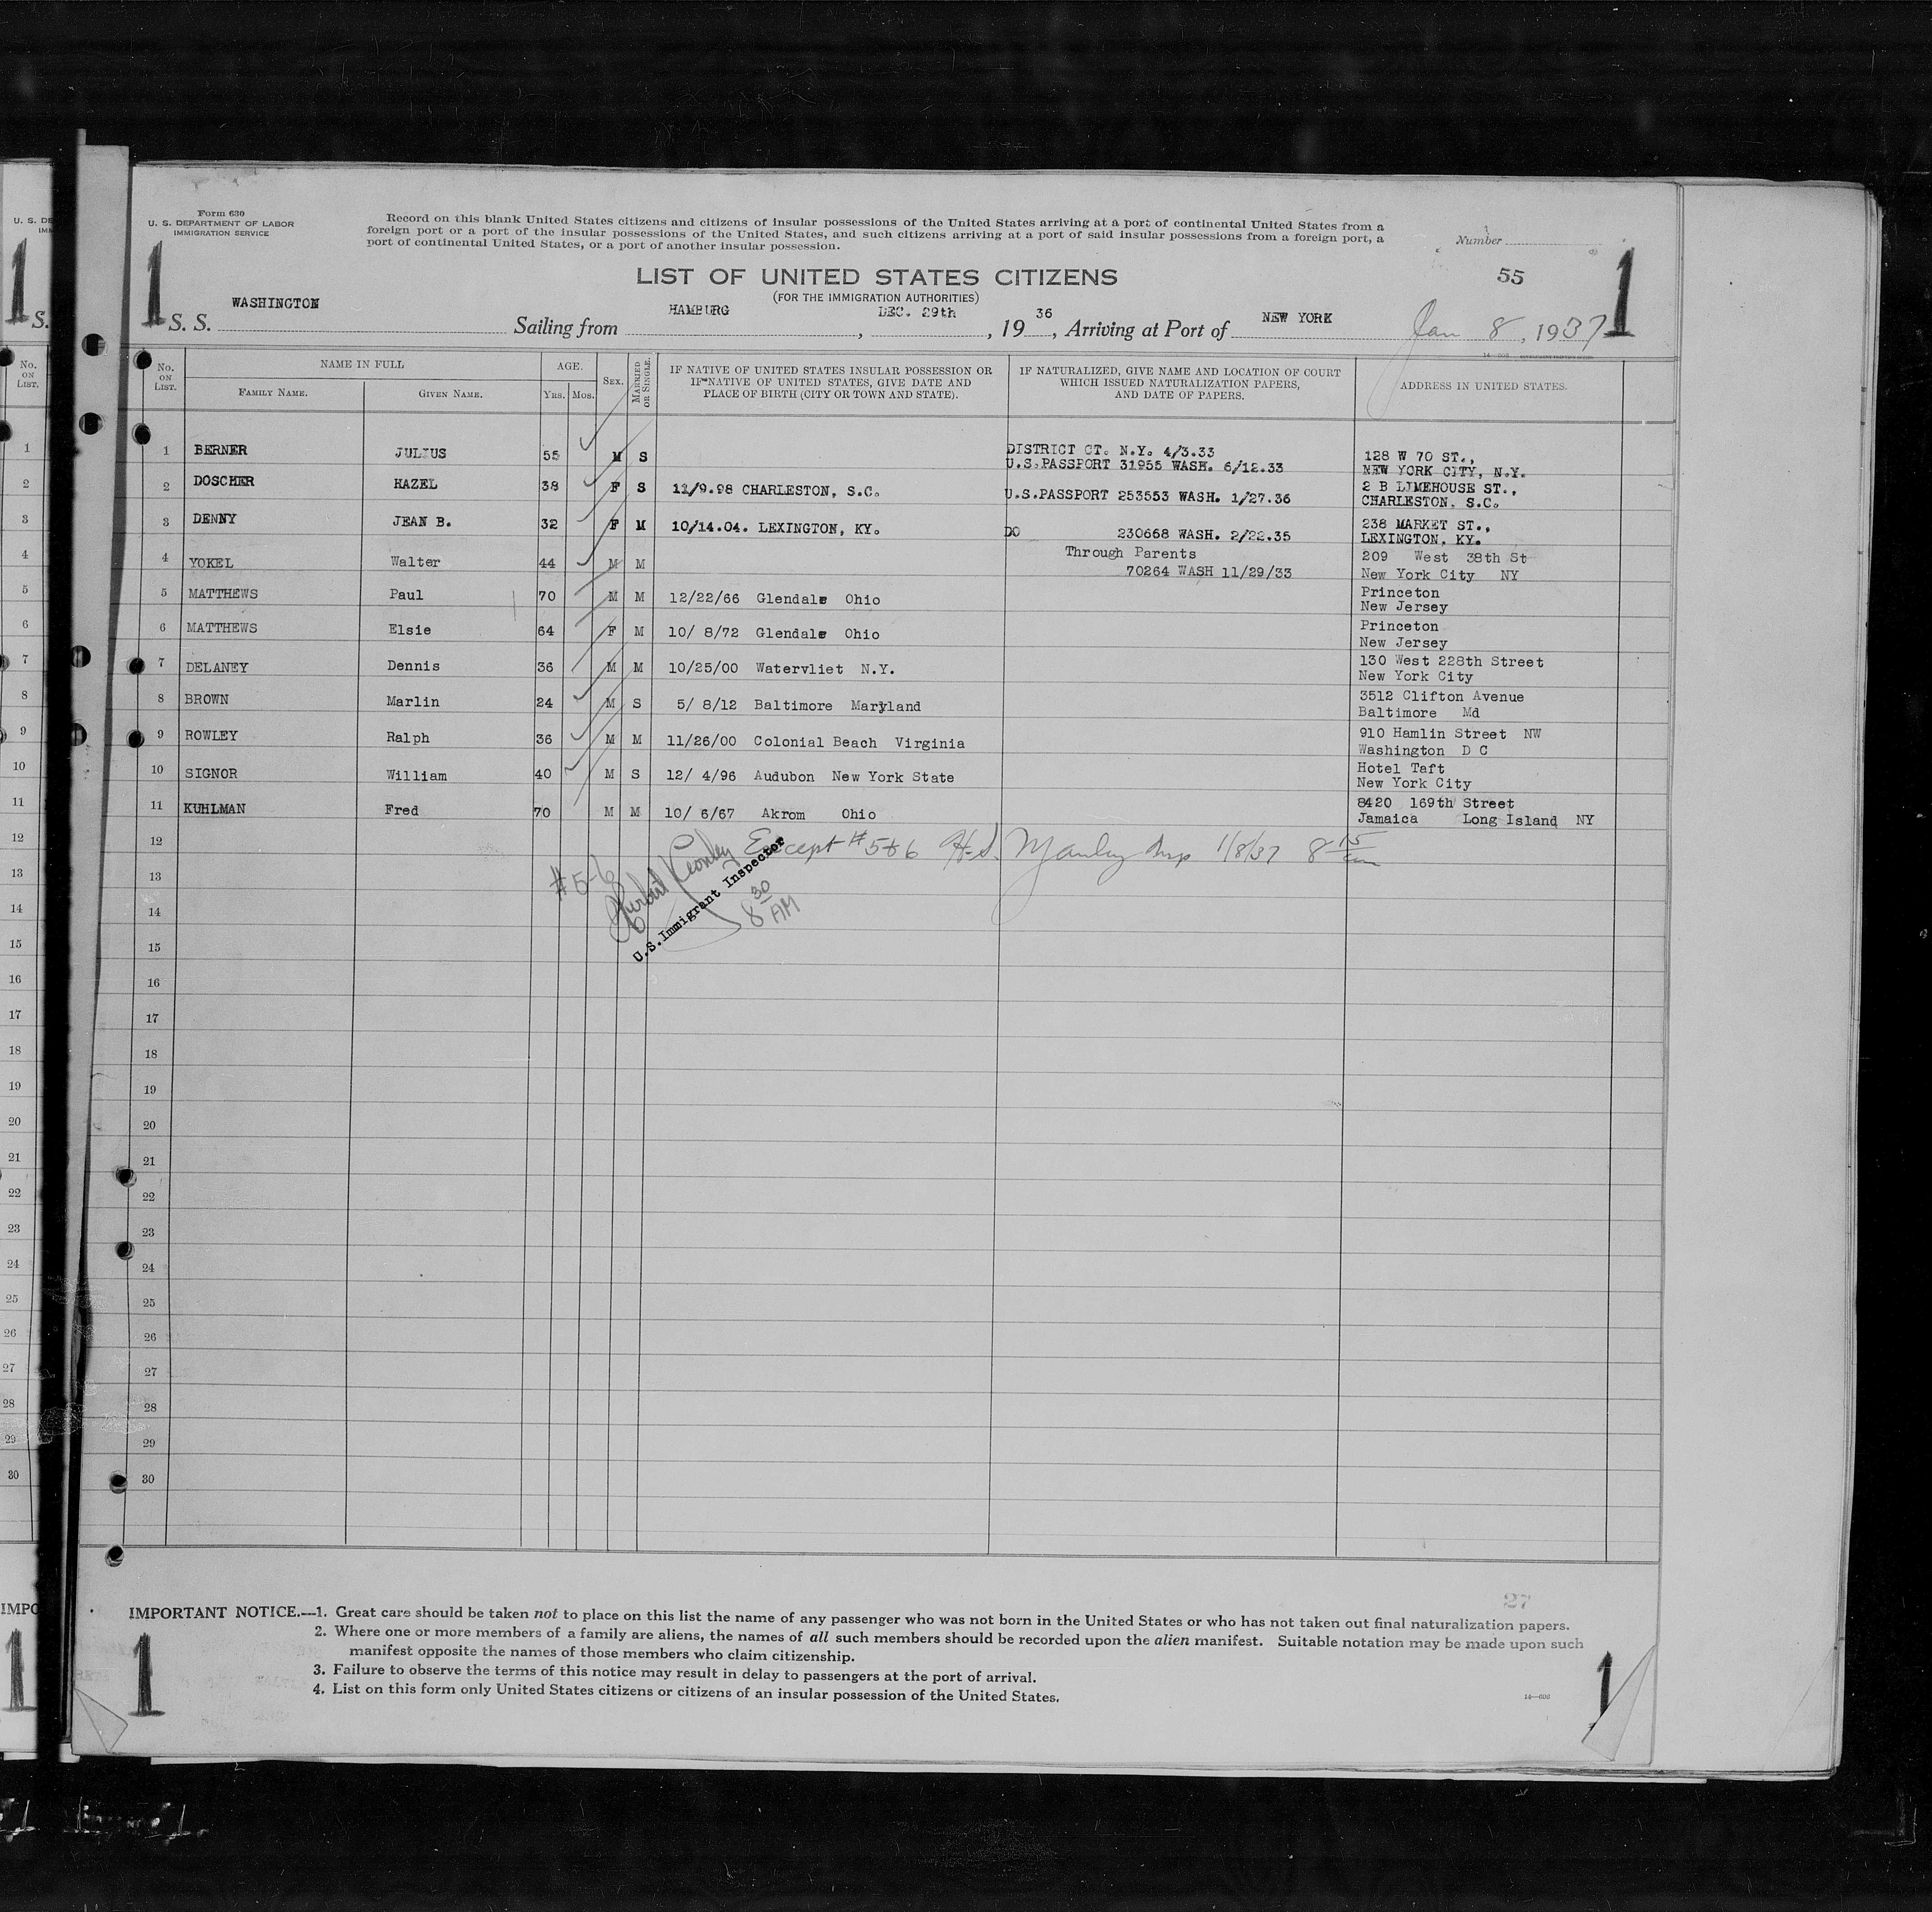 Form 630
U. S. DEPARTMENT OF LABOR
IMMIGRATION SERVICE
Record on this blank United States citizens and citizens of insular possessions of the United States arriving at a port of continental United States from a
foreign port or a port of the insular possessions of the United States, and such citizens arriving at a port of said insular possessions from a foreign port, a
port of continental United States, or a port of another insular possession.
Number
1 1
LIST OF UNITED STATES CITIZENS
(FOR THE IMMIGRATION AUTHORITIES)
55
S. S. WASHINGTON Sailing from HAMBURG, DEC. 29th, 1936, Arriving at Port of NEW YORK Jan 8, 1937
No. ON LIST. NAME IN FULL FAMILY NAME. GIVEN NAME. AGE. YRS. MOS. SEX. MARRIED OR SINGLE. IF NATIVE OF UNITED STATES INSULAR POSSESSION OR IF NATIVE OF UNITED STATES, GIVE DATE AND PLACE OF BIRTH (CITY OR TOWN AND STATE). IF NATURALIZED, GIVE NAME AND LOCATION OF COURT WHICH ISSUED NATURALIZATION PAPERS, AND DATE OF PAPERS. ADDRESS IN UNITED STATES.
1 BERNER JULIUS 55 M S DISTRICT CT. N.Y. 4/3.33 128 W 70 ST.,
U.S.PASSPORT 31955 WASH. 6/12.33 NEW YORK CITY, N.Y.
2 DOSCHER HAZEL 38 F S 11/9.98 CHARLESTON, S.C. U.S.PASSPORT 253553 WASH. 1/27.36 2 B LIMEHOUSE ST.,
CHARLESTON. S.C.
3 DENNY JEAN B. 32 F M 10/14.04. LEXINGTON, KY. DO 230668 WASH. 2/22.35 238 MARKET ST.,
LEXINGTON, KY.
4 YOKEL Walter 44 M M Through Parents 209 West 38th St
70264 WASH 11/29/33 New York City NY
5 MATTHEWS Paul 70 M M 12/22/66 Glendale Ohio Princeton
New Jersey
6 MATTHEWS Elsie 64 F M 10/ 8/72 Glendale Ohio Princeton
New Jersey
7 DELANEY Dennis 36 M M 10/25/00 Watervliet N.Y. 130 West 228th Street
New York City
8 BROWN Marlin 24 M S 5/ 8/12 Baltimore Maryland 3512 Clifton Avenue
Baltimore Md
9 ROWLEY Ralph 36 M M 11/26/00 Colonial Beach Virginia 910 Hamlin Street NW
Washington D C
10 SIGNOR William 40 M S 12/ 4/96 Audubon New York State Hotel Taft
New York City
11 KUHLMAN Fred 70 M M 10/ 6/67 Akrom Ohio 8420 169th Street
Jamaica Long Island NY
12 Except #5 & 6 H.S. Manley Insp 1/8/37 8 15 am
13 #5-6
U.S.Immigrant Inspector
8 30 AM
14
15
16
17
18
19
20
21
22
23
24
25
26
27
28
29
30
27
IMPORTANT NOTICE.—1. Great care should be taken not to place on this list the name of any passenger who was not born in the United States or who has not taken out final naturalization papers.
2. Where one or more members of a family are aliens, the names of all such members should be recorded upon the alien manifest. Suitable notation may be made upon such
manifest opposite the names of those members who claim citizenship.
3. Failure to observe the terms of this notice may result in delay to passengers at the port of arrival.
4. List on this form only United States citizens or citizens of an insular possession of the United States.
1 1